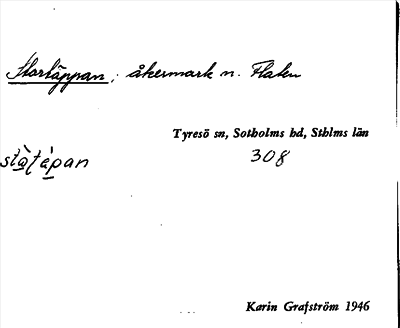 Storläppan; åkermark n. Flaten
Tyresö sn, Sotholms hd, Sthlms län
308
Karin Grafström 1946